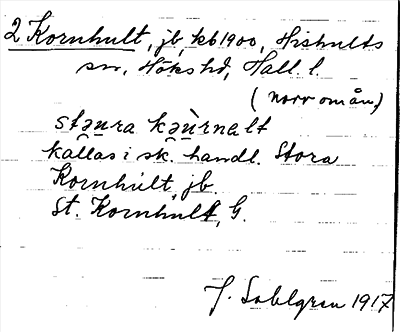 2 Kornhult, jb, kb 1900, Hishults
sn, Höks hd, Hall. l.
(norr om ån)
stəu̯ra kə̀u̯rnalt
kallas i sk. handl. Stora
Kornhult, jb.
St. Kornhult, G.
J. Sahlgren 1917